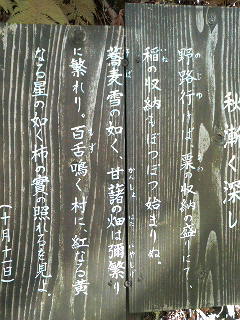 秋漸く深し
野路行けば、粟の収納の盛りにて、
稲の収納もぼつぼつ始まりぬ。
蕎麦雪の如く、甘藷の畑は彌繁り
に繁れり。百舌鳴く村に、紅なる黄
なる星の如く柿の實の照れるを見よ。
(十月十一日)